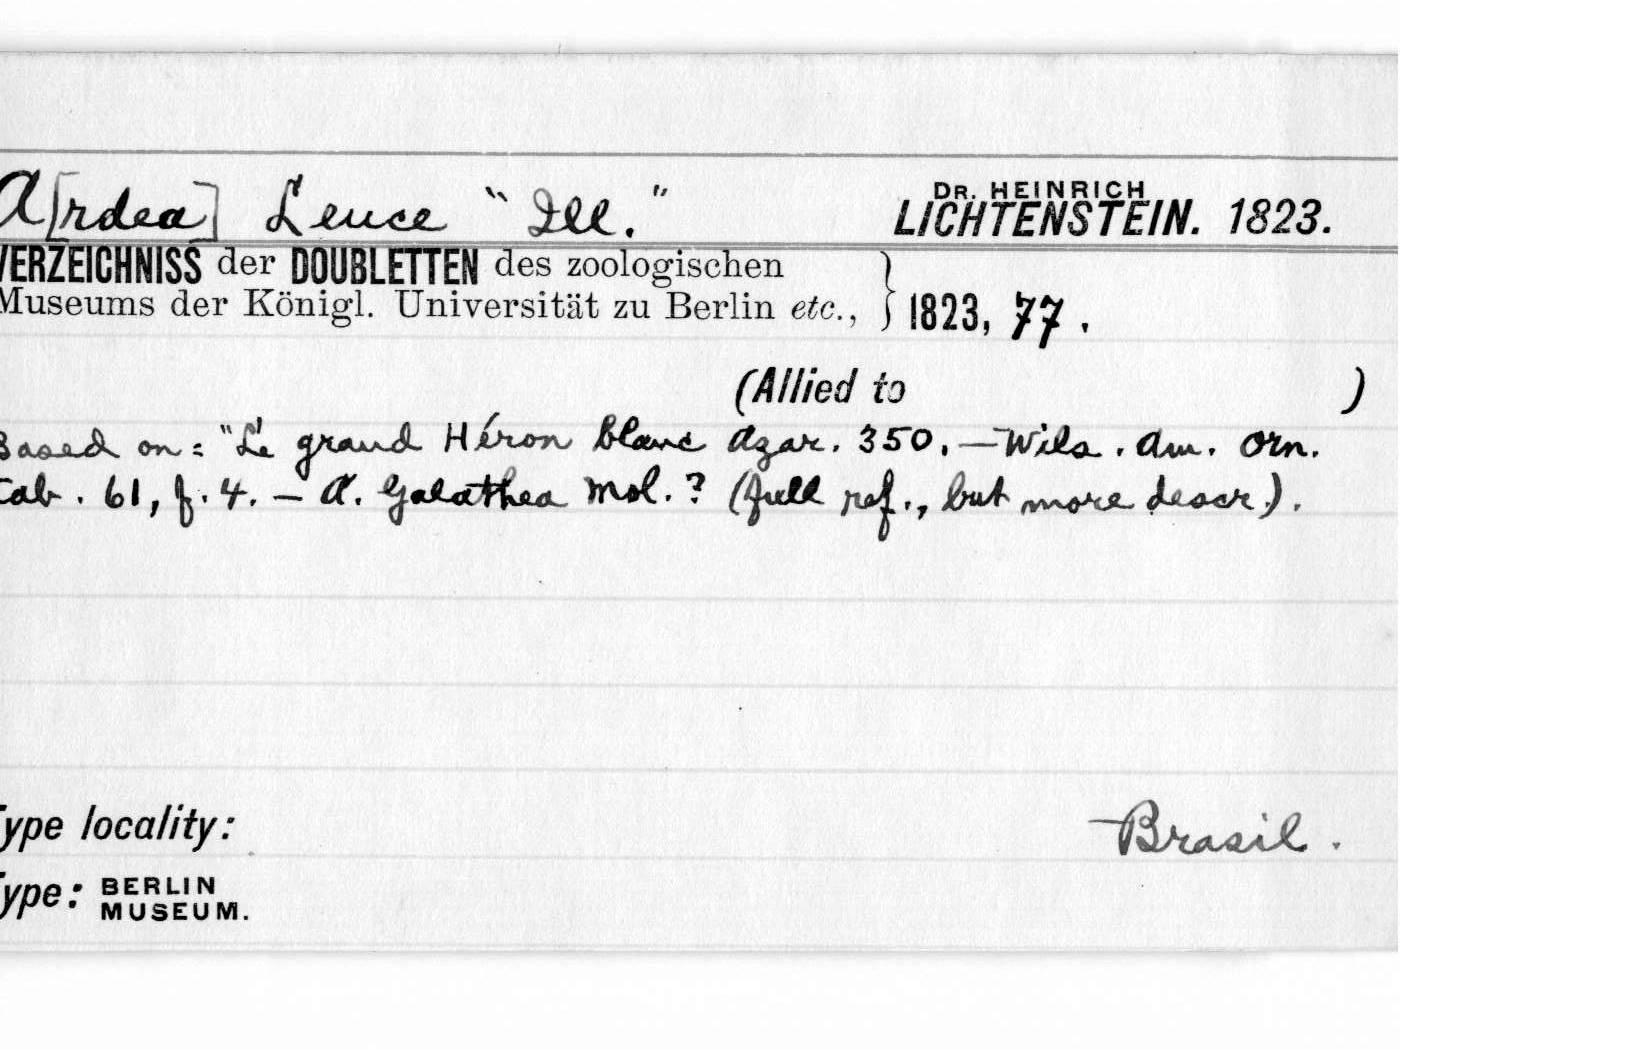 A[rdea] Leuce "Ill." DR. HEINRICH LICHTENSTEIN. 1823.
VERZEICHNISS der DOUBLETTEN des zoologischen
Museums der Königl. Universität zu Berlin etc., } 1823, 77.
(Allied to )
Based on: "Le grand Héron blanc Azar. 350. — Wils. Am. Orn.
tab. 61, f. 4. — A. Galathea Mol. ? (full ref., but more descr.).
Type locality: Brasil.
Type: BERLIN MUSEUM.